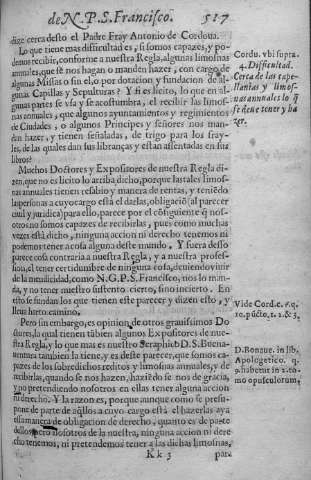 de N. P. S. Francisco. 517
dize cerca desto el Padre Fray Antonio de Cordoua.
Lo que tiene mas dificultad es, si somos capazes, y po-
demos recibir, conforme a nuestra Regla, algunas limosnas
annuales, que se nos hagan o manden hazer, con cargo de
algunas Missas o sin el, o por dotacion y fundacion de al-
gunas Capillas y Sepulturas? Y si es licito, lo que en al-
gunas partes se vsa y se acostumbra, el recibir las limos-
nas annuales, que algunos ayuntamientos y regimientos
de Ciudades, o algunos Principes y señores nos man-
dan hazer, y tienen señaladas, de trigo para los fray-
les, de las quales dan sus libranças y estan assentadas en sus
libros?
Muchos Doctores y Expositores de nuestra Regla di-
zen, que no es licito lo arriba dicho, porque las tales limos-
nas annuales tienen resabio y manera de rentas, y teniẽdo
la personas a cuyo cargo està el darlas, obligaciõ (al parecer
ciuil y juridica) para ello, parece por el cõsiguiente q̃ nos-
otros no somos capazes de recibirlas, pues como muchas
vezes està dicho, ninguna accion ni derecho tenemos ni
podemos tener a cosa alguna deste mundo, Y fuera desso
parece cosa contraria a nuestra Regla, y a nuestra profes-
sion, el tener certidumbre de ninguna cosa, deuiendo viuir
de la mendicidad, como N. G. P. S. Francisco, nos lo man-
da, y no tener nuestro sustento cierto, sino incierto. En
esto se fundan los que tienen este parecer y dizen esto, y
lleuan harto camino.
Pero sin embargo, es opinion de otros grauissimos Do-
tores, la qual tienen tãbien algunos Expositores de nues-
tra Regla, y lo que mas es nuestro Seraphico D. S. Buena-
auentura tambien la tiene, y es deste parecer, que somos ca-
pazes de los sobredichos reditos y limosnas annuales, y de
recibirlas, quando se nos hazen, haziẽdo se nos de gracia,
y no pretendiendo nosotros en ellas tener alguna accion
ni derecho. Y la razon es, porque aunque como se presu-
pone de parte de aq̃llos a cuyo cargo està el hazerlas aya
esta manera de obligacion de derecho, quanto es de parte
dellos, pero de nosotros de la nuestra, ninguna accion ni dere-
cho tenemos, ni pretendemos tener a las dichas limosnas,
Kk 3 para
Cordu. vbi supra
4. Dificultad.
Cerca de las cape-
llanias y limos-
nas annuales lo q̃
se deue tener y ha
zer.
Vide Cord. c. 4. q.
10. pũcto. 1. 2. & 3.
D. Bonaue. in lib.
Apologetico. q.
habetur in 2. to-
mo opusculorum.